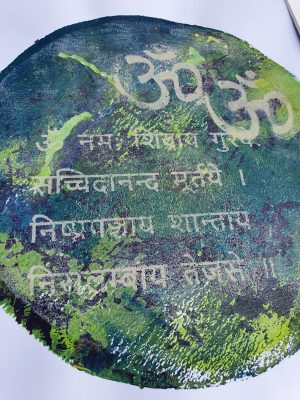 ॐ ॐ
ॐ नमः शिवाय गुरवे
सच्चिदानन्द मूर्तये ।
निष्प्रपञ्चाय शान्ताय
निरालम्बाय तेजसे ॥